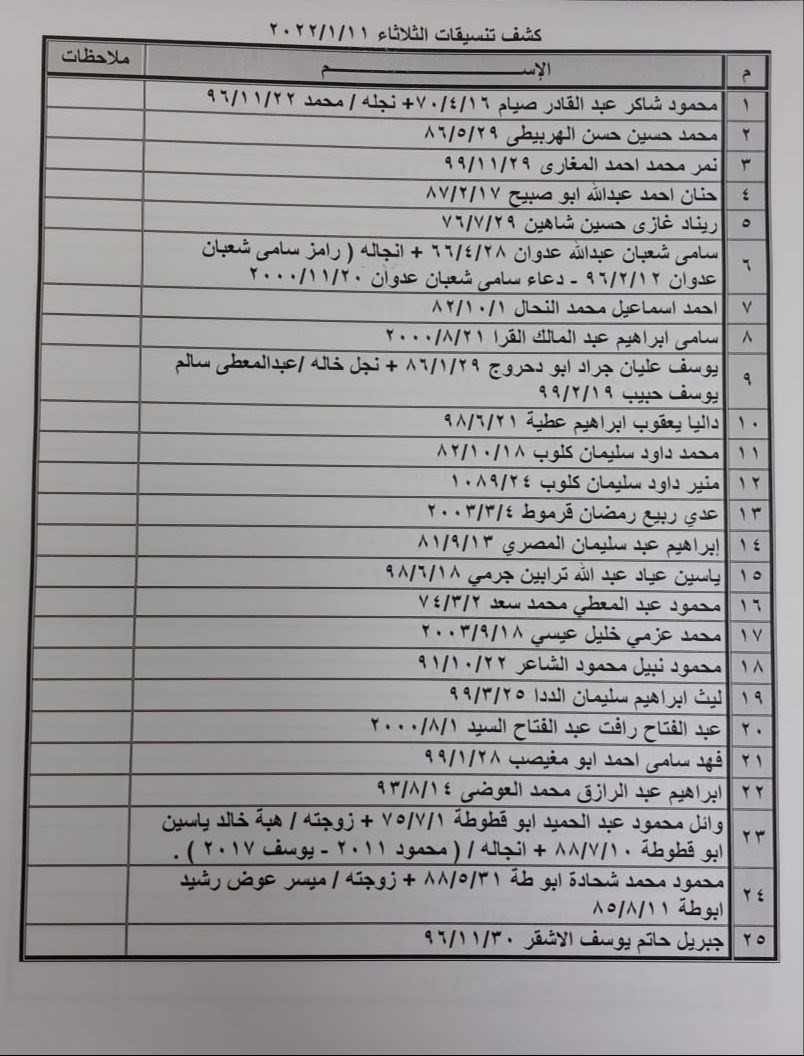 كشف تنسيقات الثلاثاء ٢٠٢٢/١/١١
م الإســـــــــم ملاحظات
١ محمود شاكر عبد القادر صيام ٧٠/٤/١٦+ نجله / محمد ٩٦/١١/٢٢
٢ محمد حسين حسن الهربيطى ٨٦/٥/٢٩
٣ نمر محمد احمد المغارى ٩٩/١١/٢٩
٤ حنان احمد عبدالله ابو صبيح ٨٧/٢/١٧
٥ ريناد غازى حسين شاهين ٧٦/٧/٢٩
٦ سامى شعبان عبدالله عدوان ٦٦/٤/٢٨ + انجاله ( رامز سامى شعبان
عدوان ٩٦/٢/١٢ - دعاء سامى شعبان عدوان ٢٠٠٠/١١/٢٠
٧ احمد اسماعيل محمد النحال ٨٢/١٠/١
٨ سامى ابراهيم عبد المالك القرا ٢٠٠٠/٨/٢١
٩ يوسف عليان جراد ابو دحروج ٨٦/١/٢٩ + نجل خاله /عبدالمعطى سالم
يوسف حبيب ٩٩/٢/١٩
١٠ داليا يعقوب ابراهيم عطية ٩٨/٦/٢١
١١ محمد داود سليمان كلوب ٨٢/١٠/١٨
١٢ منير داود سليمان كلوب ١٠٨٩/٢٤
١٣ عدي ربيع رمضان قرموط ٢٠٠٣/٣/٤
١٤ إبراهيم عبد سليمان المصري ٨١/٩/١٣
١٥ ياسين عياد عبد الله ترابين جرمي ٩٨/٦/١٨
١٦ محمود عبد المعطي محمد سعد ٧٤/٣/٢
١٧ محمد عزمي خليل عيسي ٢٠٠٣/٩/١٨
١٨ محمود نبيل محمود الشاعر ٩١/١٠/٢٢
١٩ ليث ابراهيم سليمان الددا ٩٩/٣/٢٥
٢٠ عبد الفتاح رافت عبد الفتاح السيد ٢٠٠٠/٨/١
٢١ فهد سامى احمد ابو مغيصب ٩٩/١/٢٨
٢٢ ابراهيم عبد الرازق محمد العوضى ٩٣/٨/١٤
٢٣ وائل محمود عبد الحميد ابو قطوطة ٧٥/٧/١ + زوجته / هبة خالد ياسين
ابو قطوطة ٨٨/٧/١٠ + انجاله / ( محمود ٢٠١١ - يوسف ٢٠١٧ ) .
٢٤ محمود محمد شحادة ابو طة ٨٨/٥/٣١ + زوجته / ميسر عوض رشيد
ابوطة ٨٥/٨/١١
٢٥ جبريل حاتم يوسف الاشقر ٩٦/١١/٣٠